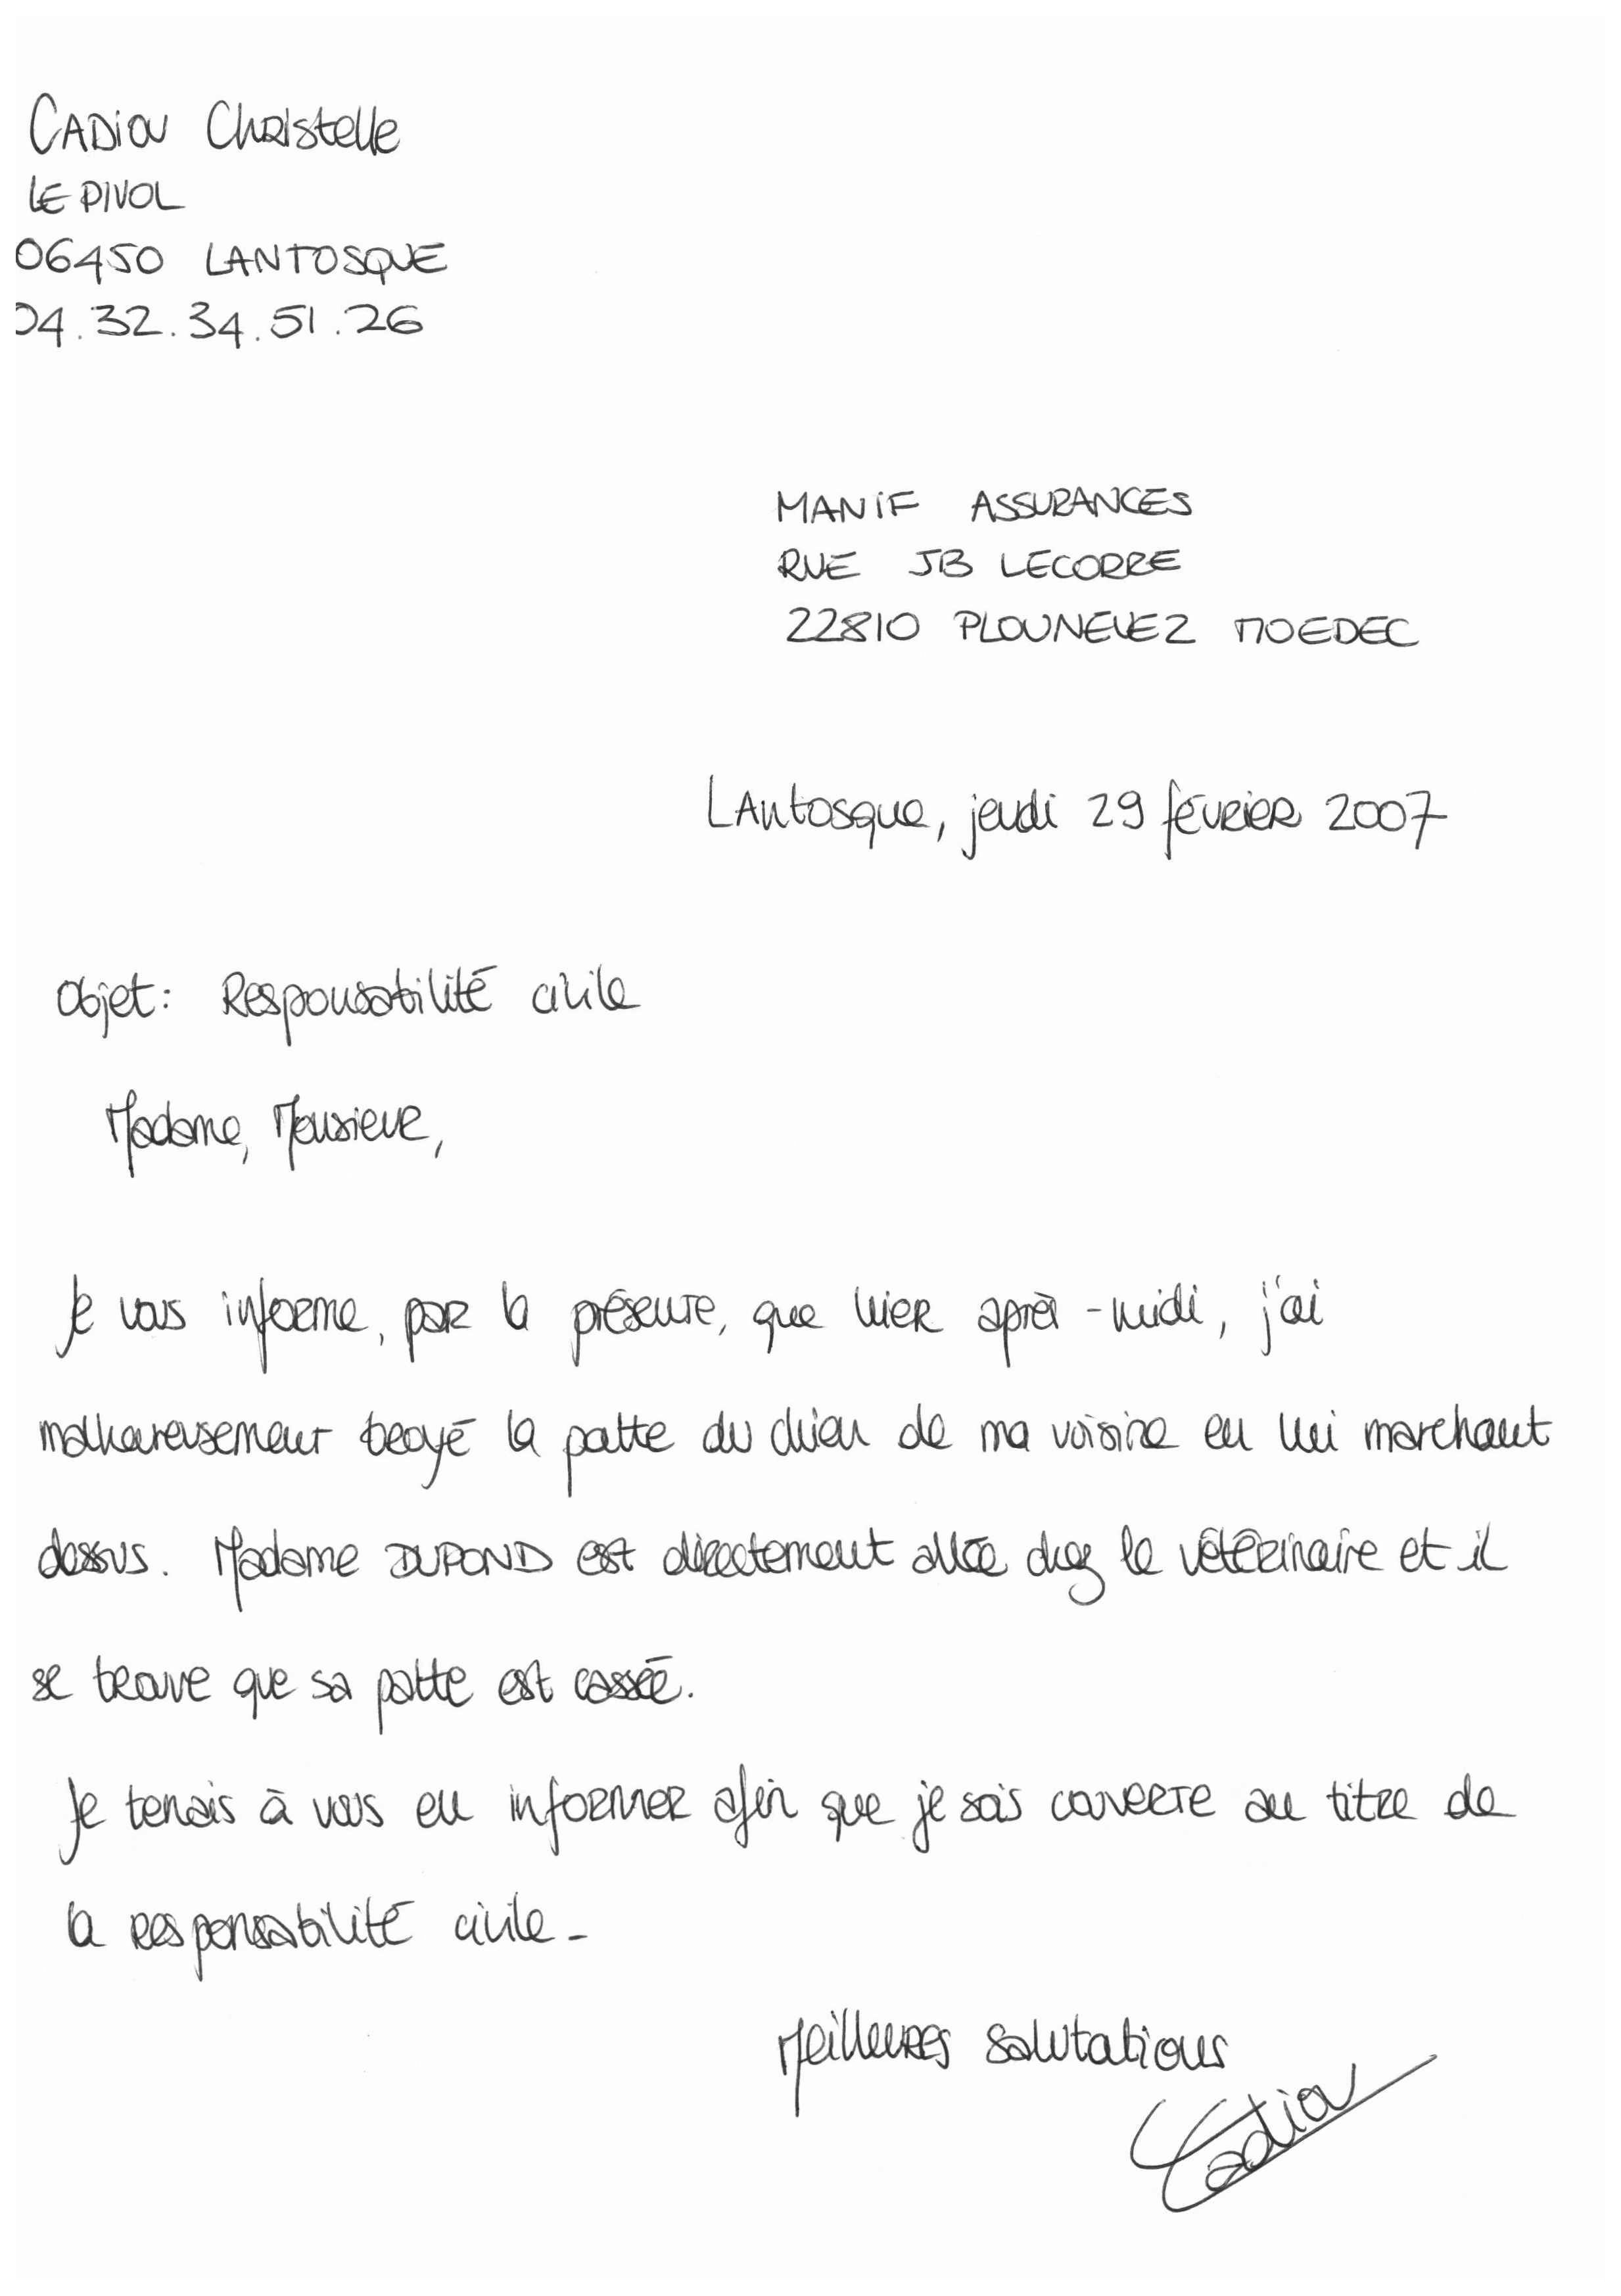 CADIOU Christelle
LE PIVOL
06450 LANTOSQUE
04.32.34.51.26
MANIF ASSURANCES
RUE JB LECORRE
22810 PLOUNEVEZ MOEDEC
LAntosque, jeudi 29 février 2007
Objet: Responsabilité civile
Madame, Monsieur,
Je vous informe, par la présente, que hier après-midi, j'ai
malheureusement broyé la patte du chien de ma voisine en lui marchant
dessus. Madame DUPOND est directement allée chez le vétérinaire et il
se trouve que sa patte est cassée.
Je tenais à vous en informer afin que je sois couverte au titre de
la responsabilité civile.
Meilleures salutations
Cadiou